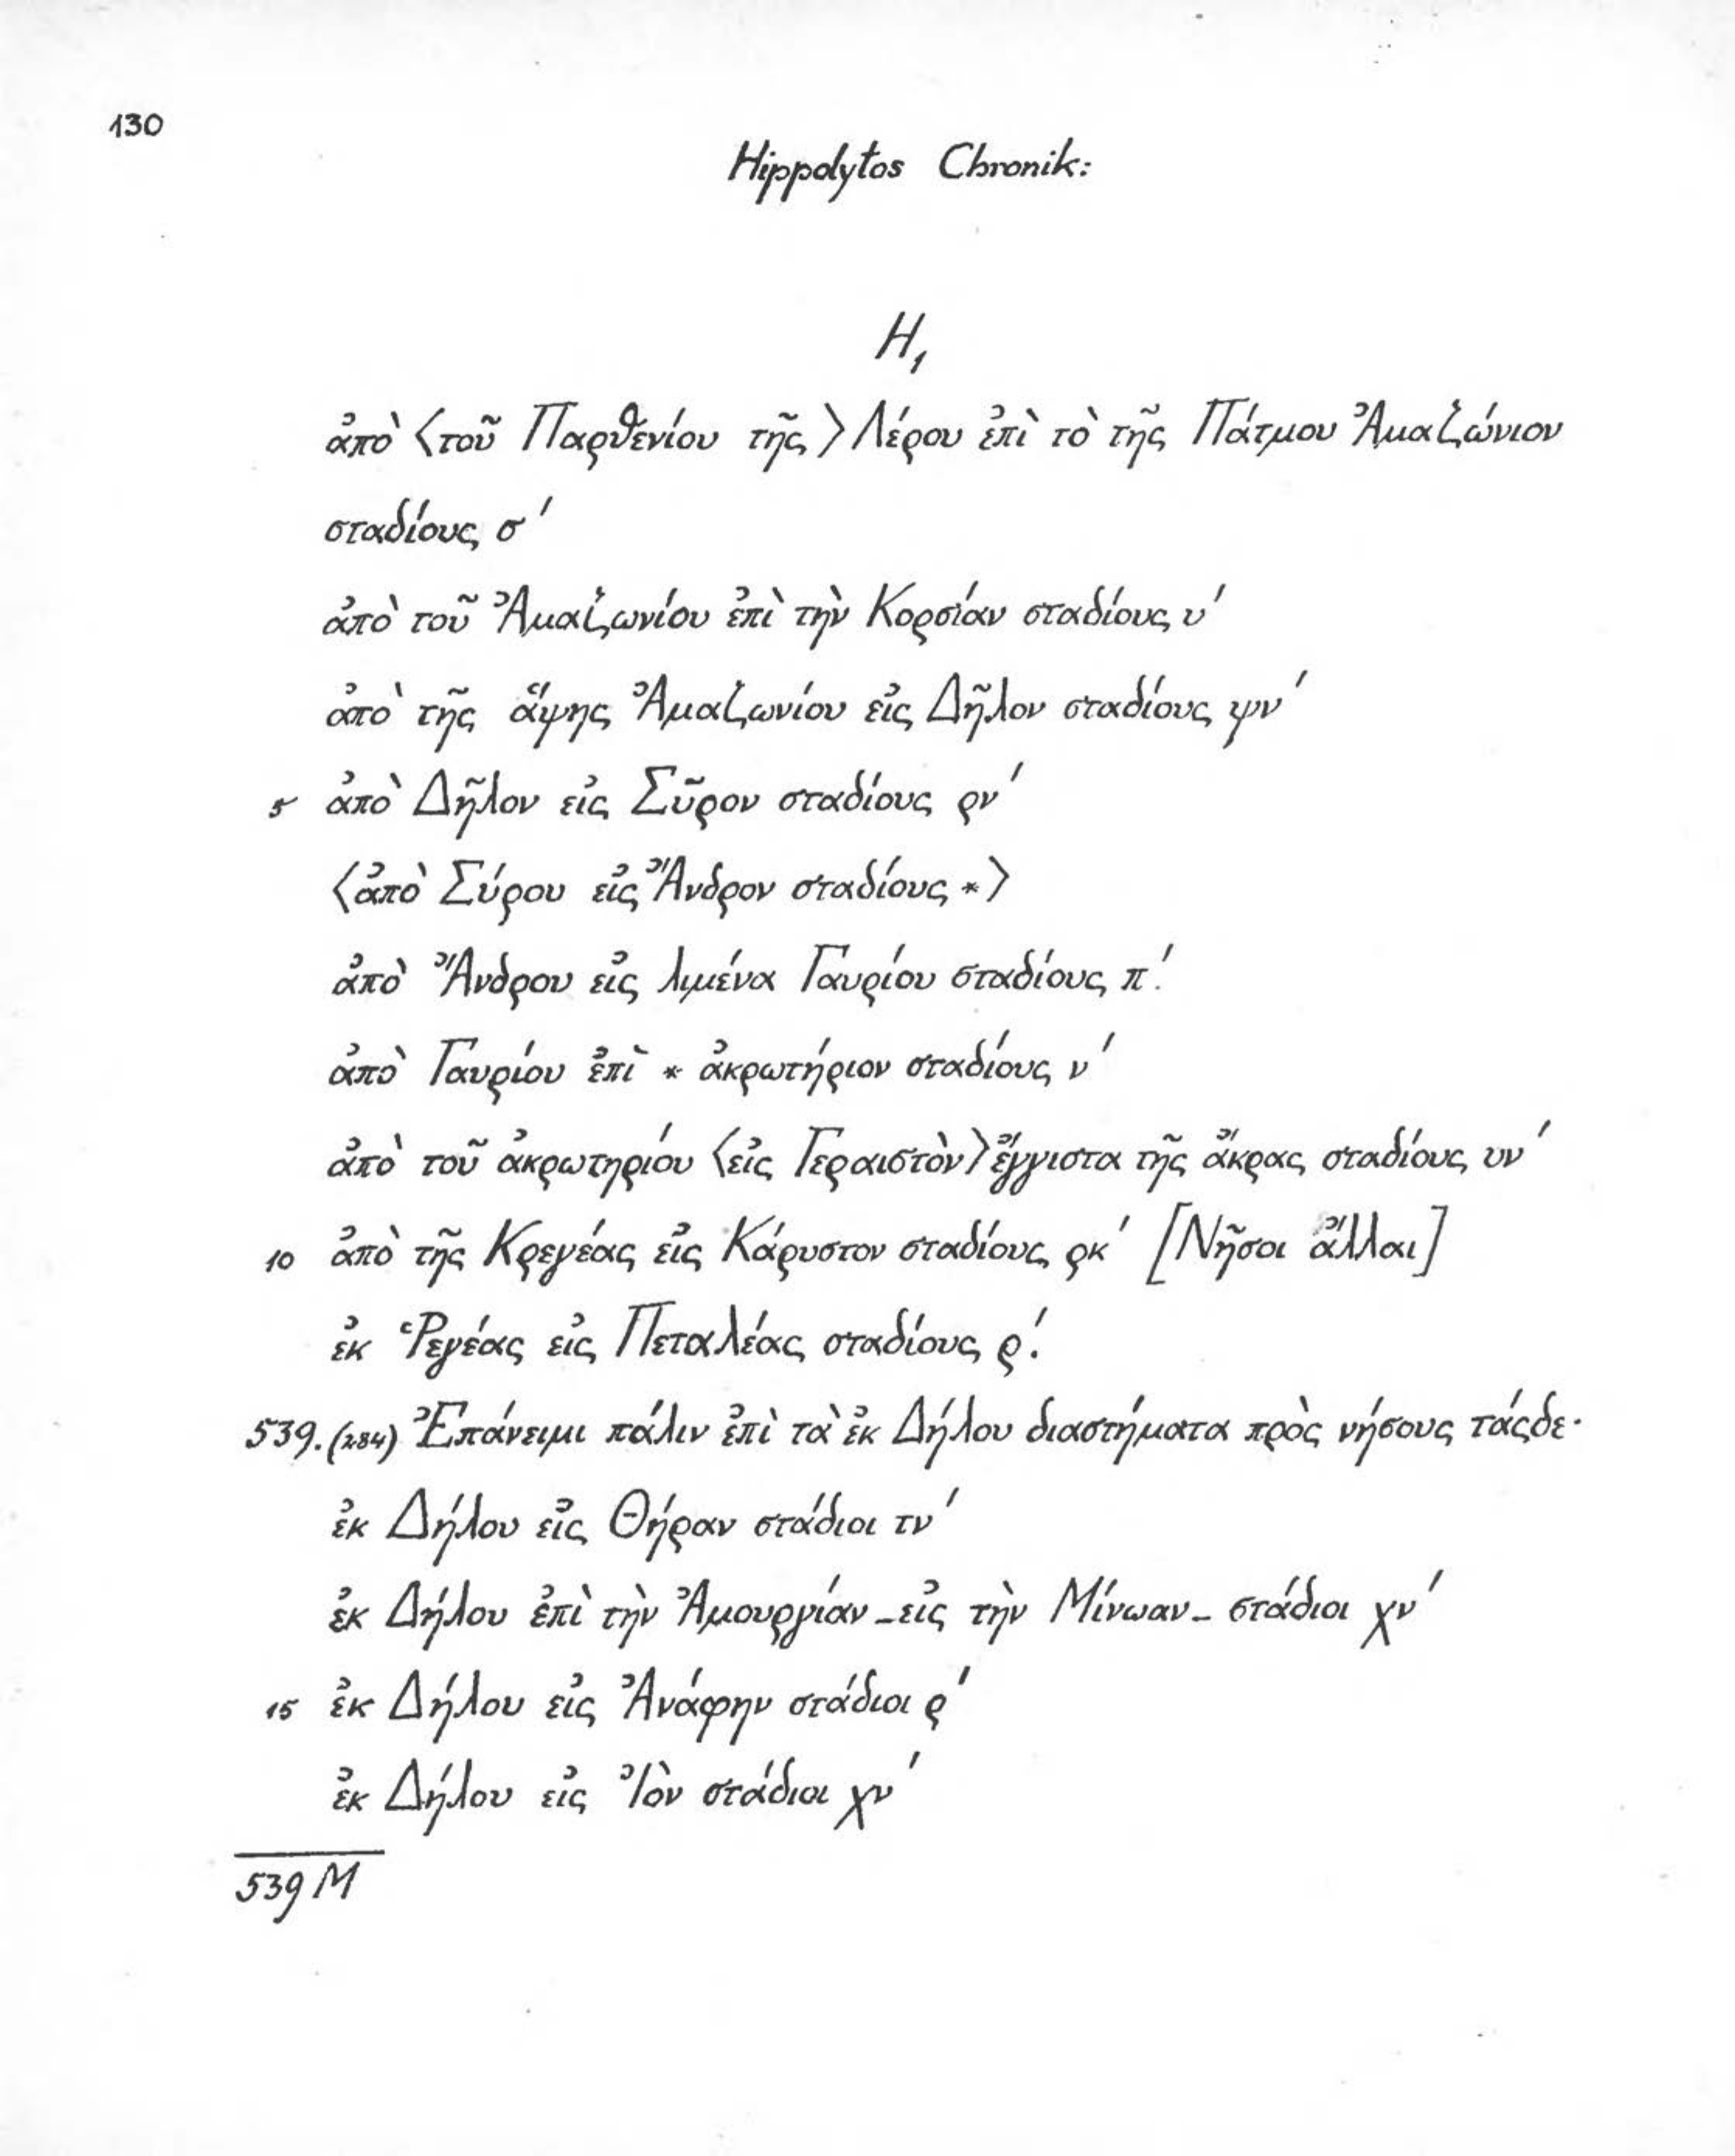 130
Hippolytos Chronik:
H₁
ἀπὸ ⟨τοῦ Παρθενίου τῆς⟩ Λέρου ἐπὶ τὸ τῆς Πάτμου Ἀμαζώνιον
σταδίους σ′
ἀπὸ τοῦ Ἀμαζωνίου ἐπὶ τὴν Κορσίαν σταδίους υ′
ἀπὸ τῆς ἅψης Ἀμαζωνίου εἰς Δῆλον σταδίους ψν′
5 ἀπὸ Δῆλον εἰς Σῦρον σταδίους ρν′
⟨ἀπὸ Σύρου εἰς Ἄνδρον σταδίους *⟩
ἀπὸ Ἄνδρου εἰς λιμένα Γαυρίου σταδίους π′.
ἀπὸ Γαυρίου ἐπὶ * ἀκρωτήριον σταδίους ν′
ἀπὸ τοῦ ἀκρωτηρίου ⟨εἰς Γεραιστὸν⟩ ἔγγιστα τῆς ἄκρας σταδίους υν′
10 ἀπὸ τῆς Κρεγέας εἰς Κάρυστον σταδίους ρκ′ [Νῆσοι ἄλλαι]
ἐκ Ῥεγέας εἰς Πεταλέας σταδίους ρ′.
539. (284) Ἐπάνειμι πάλιν ἐπὶ τὰ ἐκ Δήλου διαστήματα πρὸς νήσους τάςδε·
ἐκ Δήλου εἰς Θήραν στάδιοι τν′
ἐκ Δήλου ἐπὶ τὴν Ἀμουργίαν - εἰς τὴν Μίνωαν - στάδιοι χν′
15 ἐκ Δήλου εἰς Ἀνάφην στάδιοι ρ′
ἐκ Δήλου εἰς Ἰὸν στάδιοι χν′
539 M